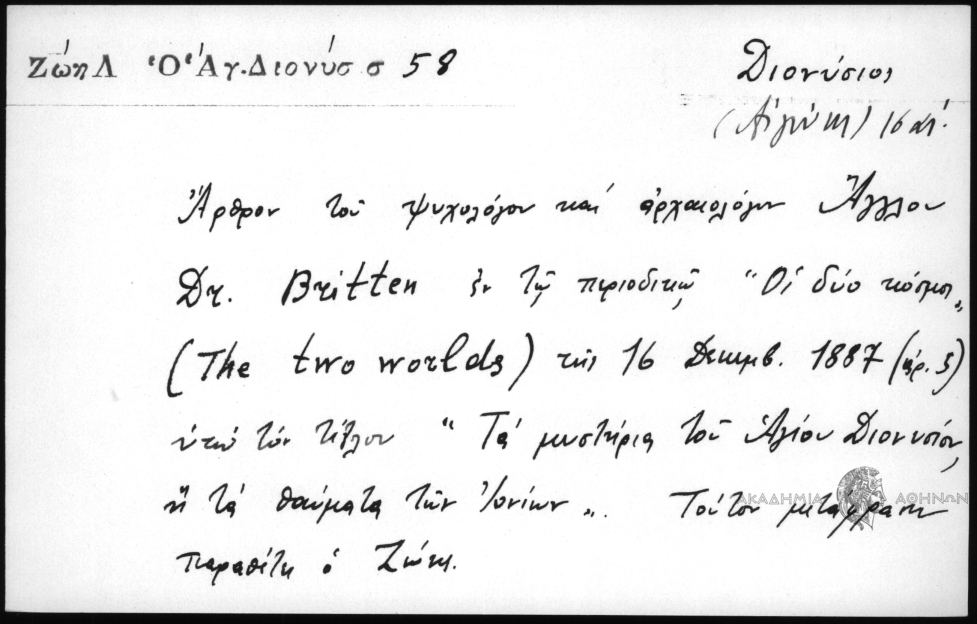 Ζώη Λ Ὁ Ἁγ.Διονύσ σ 58
Διονύσιος
(Αἰγίνης) 16 αἰ.
Ἄρθρον τοῦ ψυχολόγου καί ἀρχαιολόγου Ἄγγλου
Dr. Britten ἐν τῷ περιοδικῷ "Οἱ δύο κόσμοι"
(The two worlds) τῆς 16 Δεκεμβ. 1887 (ἀρ. 5)
ὑπό τόν τίτλον "Τά μυστήρια τοῦ Ἁγίου Διονυσίου,
ἤ τά θαύματα τῶν Ἰονίων". Τούτου
παραθέτει ὁ Ζώης.
ΑΚΑΔΗΜΙΑ ΑΘΗΝΩΝ